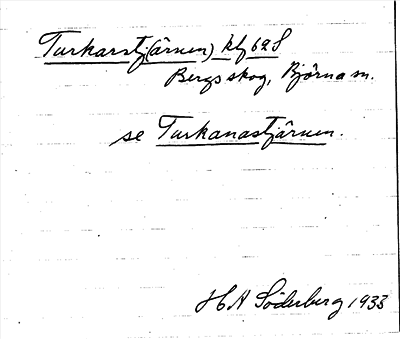 Turkarstj(ärnen) klf 62S
Bergs skog, Björna sn.
se Turkanastjärnen.
HA Söderberg 1933